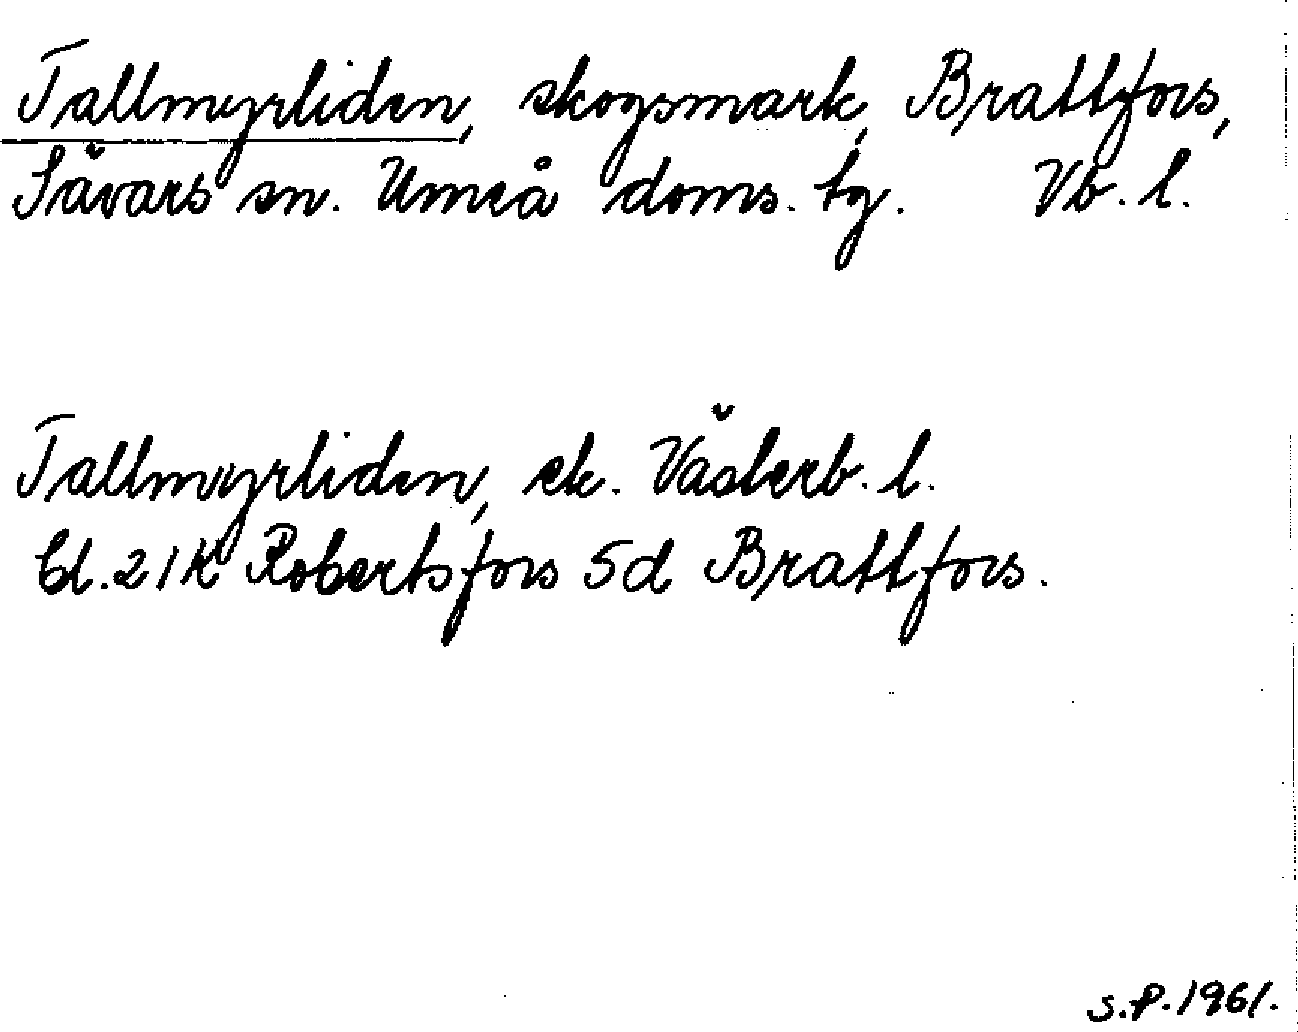 Tallmyrliden, skogsmark, Brattfors,
Sävars sn. Umeå doms. tg. Vb. l.
Tallmyrliden, ek. Västerb. l.
bl. 21K Robertsfors 5d Brattfors.
S.P. 1961.